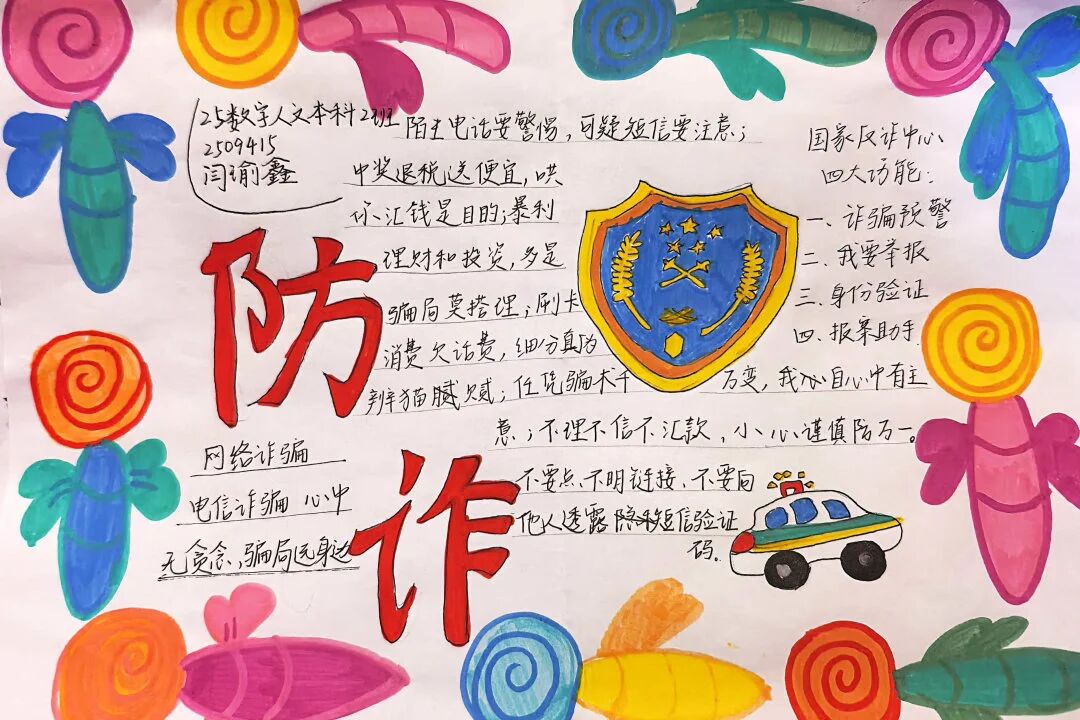 25数字人文本科2班
2509415
闫瑜鑫
陌生电话要警惕，可疑短信要注意；
中奖退税送便宜，哄
你汇钱是目的；暴利
理财和投资，多是
骗局莫搭理；刷卡
消费欠话费，细分真为
辨猫腻；任凭骗术千
万变，我心自心中有主
意；不理不信不汇款，小心谨慎防万一。
国家反诈中心
四大功能：
一、诈骗预警
二、我要举报
三、身份验证
四、报案助手
防
诈
网络诈骗
电信诈骗 心中
无贪念，骗局远身边
不要点不明链接，不要向
他人透露 短信验证
码。